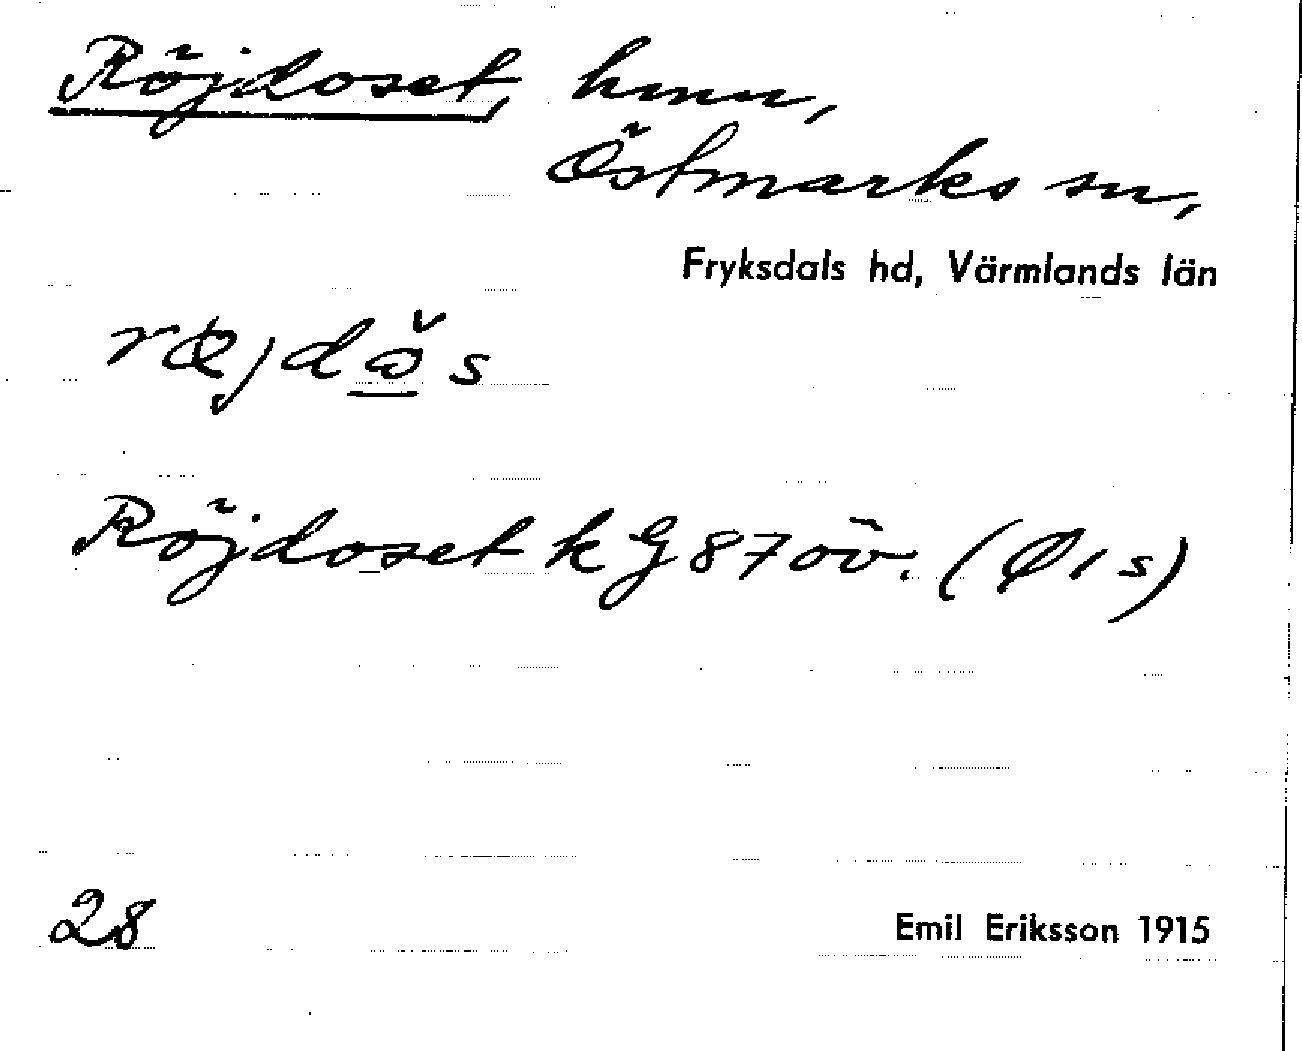 Röjdoset, hmn,
Östmarks sn,
Fryksdals hd, Värmlands län
Röjdoset k G 87 öv.
28
Emil Eriksson 1915